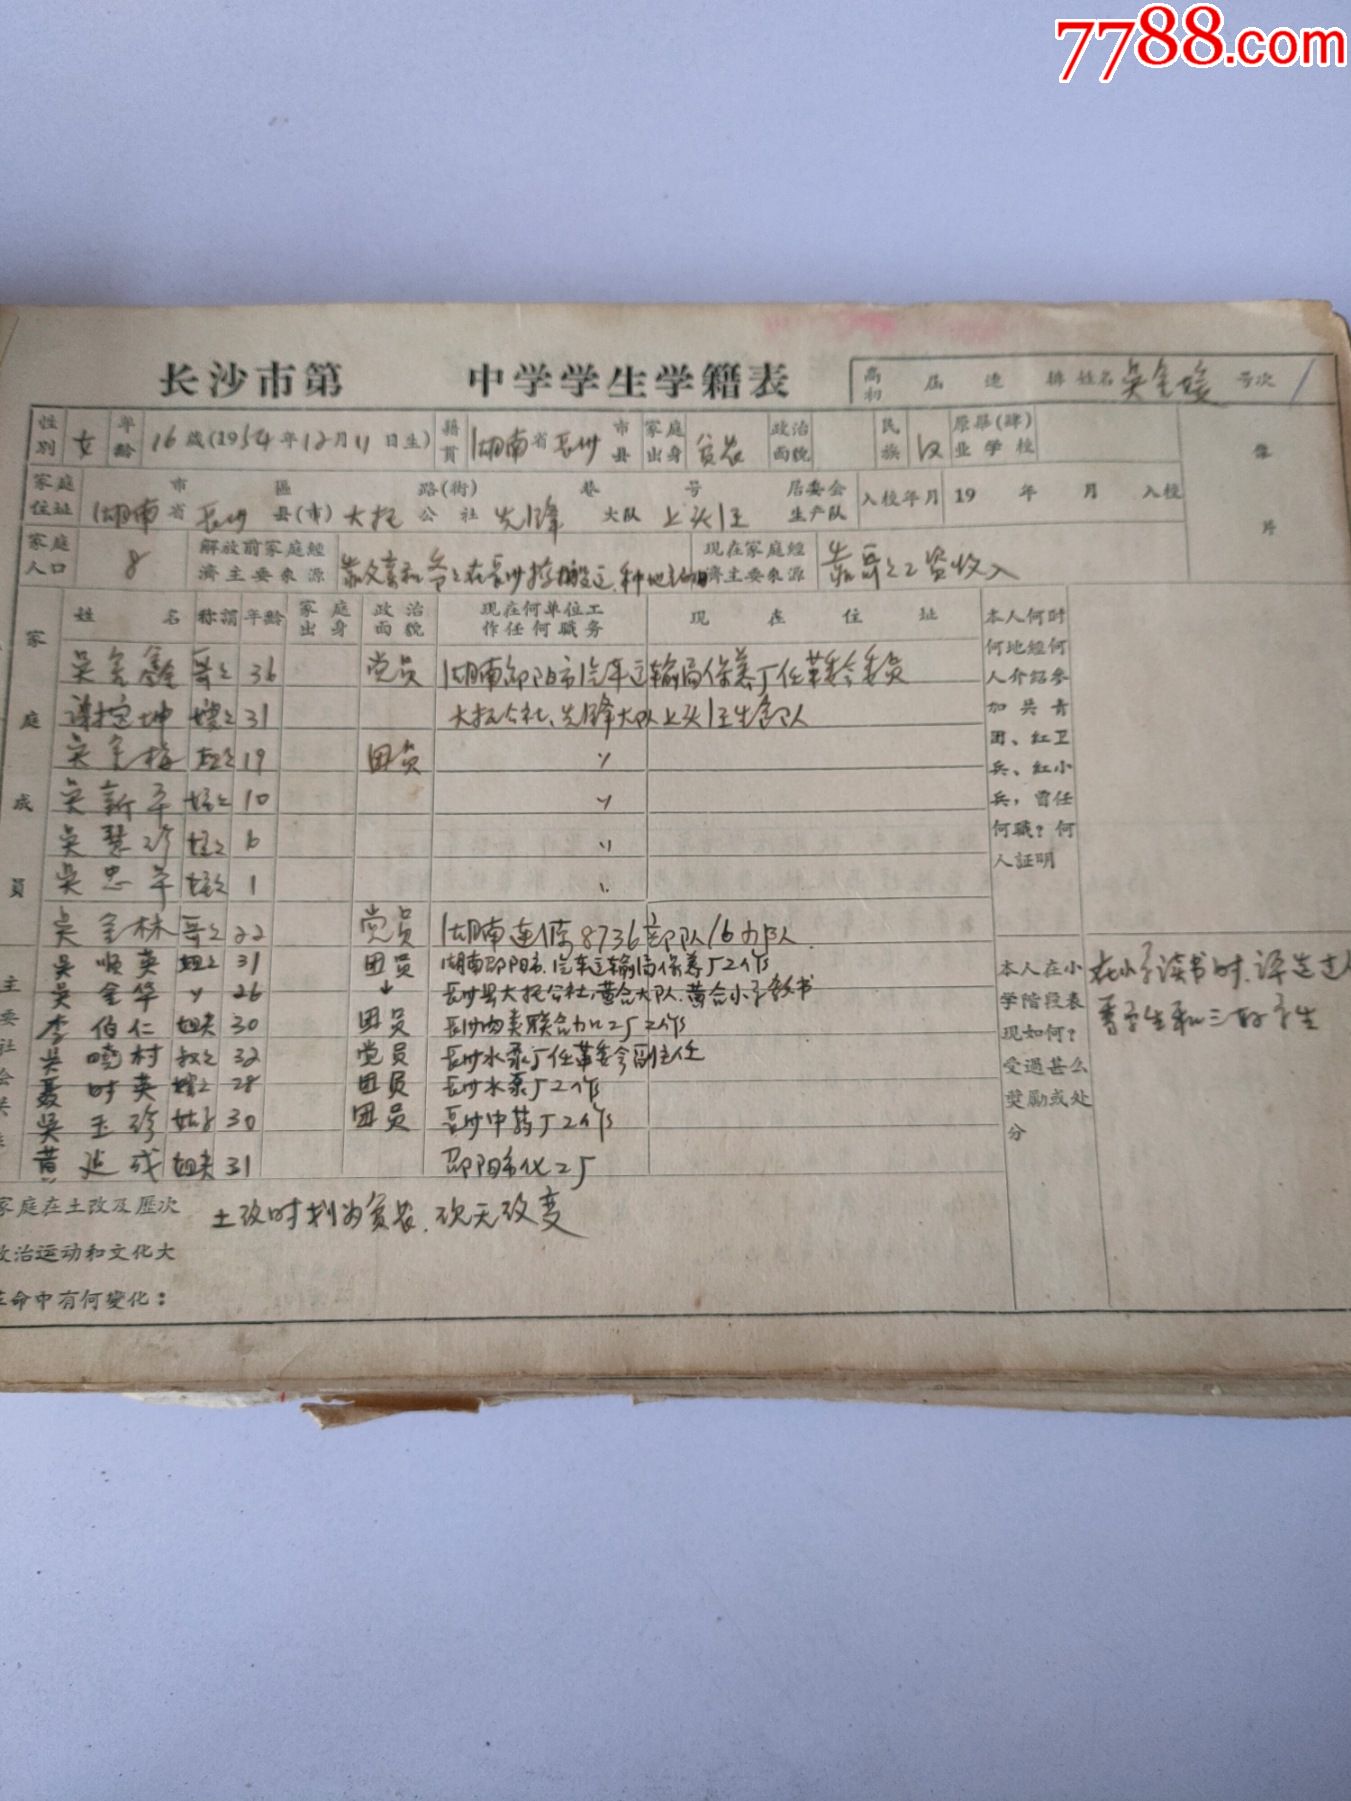 7788.com
长沙市第 中学学生学籍表
高初 届 连 排 姓名 吴金 号次 1
性别 女 年龄 16 歲(1954年12月11日生) 籍贯 湖南省长沙市县 家庭出身 贫农 政治面貌 民族 汉 原毕(肄)业学校
像片
家庭住址 市 區 路(街) 巷 号 居委会
湖南省 长沙 县(市) 大托 公社 先锋 大队 上头 生产队
入校年月 19 年 月 入校
家庭人口 8 解放前家庭經濟主要來源 靠父亲和爷々在长沙 搬运、种地 现在家庭經濟主要來源 靠哥々工资收入
家庭成员
姓名 称謂 年齡 家庭出身 政治面貌 现在何单位工作任何職务 现在住址
吴金鑫 哥々 36 党员 湖南邵阳市汽车运输局保养厂任革委会委员
谭 坤 嫂々 31 大托公社、先锋大队上头 生产队
吴金梅 19 团员 〃
吴新平 10 〃
吴慧珍 6 〃
吴忠 1 〃
吴金林 哥々 22 党员 湖南 8736部队16 队
主要社会关
吴顺英 姐々 31 团员 湖南邵阳市汽车运输局保养厂工作
吴金华 〃 26 长沙县大托公社,黄合大队.黄合小学教书
李伯仁 姐夫 30 团员 长沙肉类联合加工厂工作
吴晓村 叔々 32 党员 长沙水泵厂任革委会副主任
聂时英 28 团员 长沙水泵厂工作
吴玉珍 30 团员 长沙中药厂工作
黄 成 姐夫 31 邵阳市化工厂
家庭在土改及歷次政治运动和文化大革命中有何變化:
土改时划为贫农,次无改变
本人何时何地經何人介紹参加共青团、红卫兵、红小兵,曾任何職?何人証明
本人在小学階段表现如何?受過甚么奖励或处分
在小学读书时,评选过
学生和三好学生